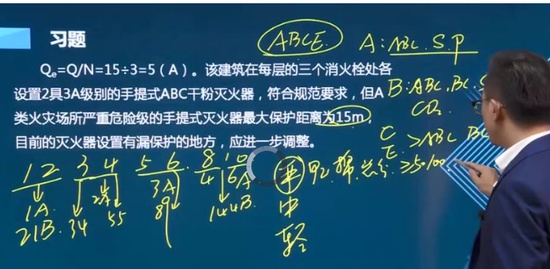 习题
Qe=Q/N=15÷3=5（A）。该建筑在每层的三个消火栓处各
设置2具3A级别的手提式ABC干粉灭火器，符合规范要求，但A
类火灾场所严重危险级的手提式灭火器最大保护距离为15m，
目前的灭火器设置有漏保护的地方，应进一步调整。
ABCE.
A: ABC. S. P
B: ABC, BC, S
CO2
C
E > ABC BC
1 2 3 4 5 6 8 10
1A 2A 3A 4 6A
21B 34 55 89 144B
严
中
轻